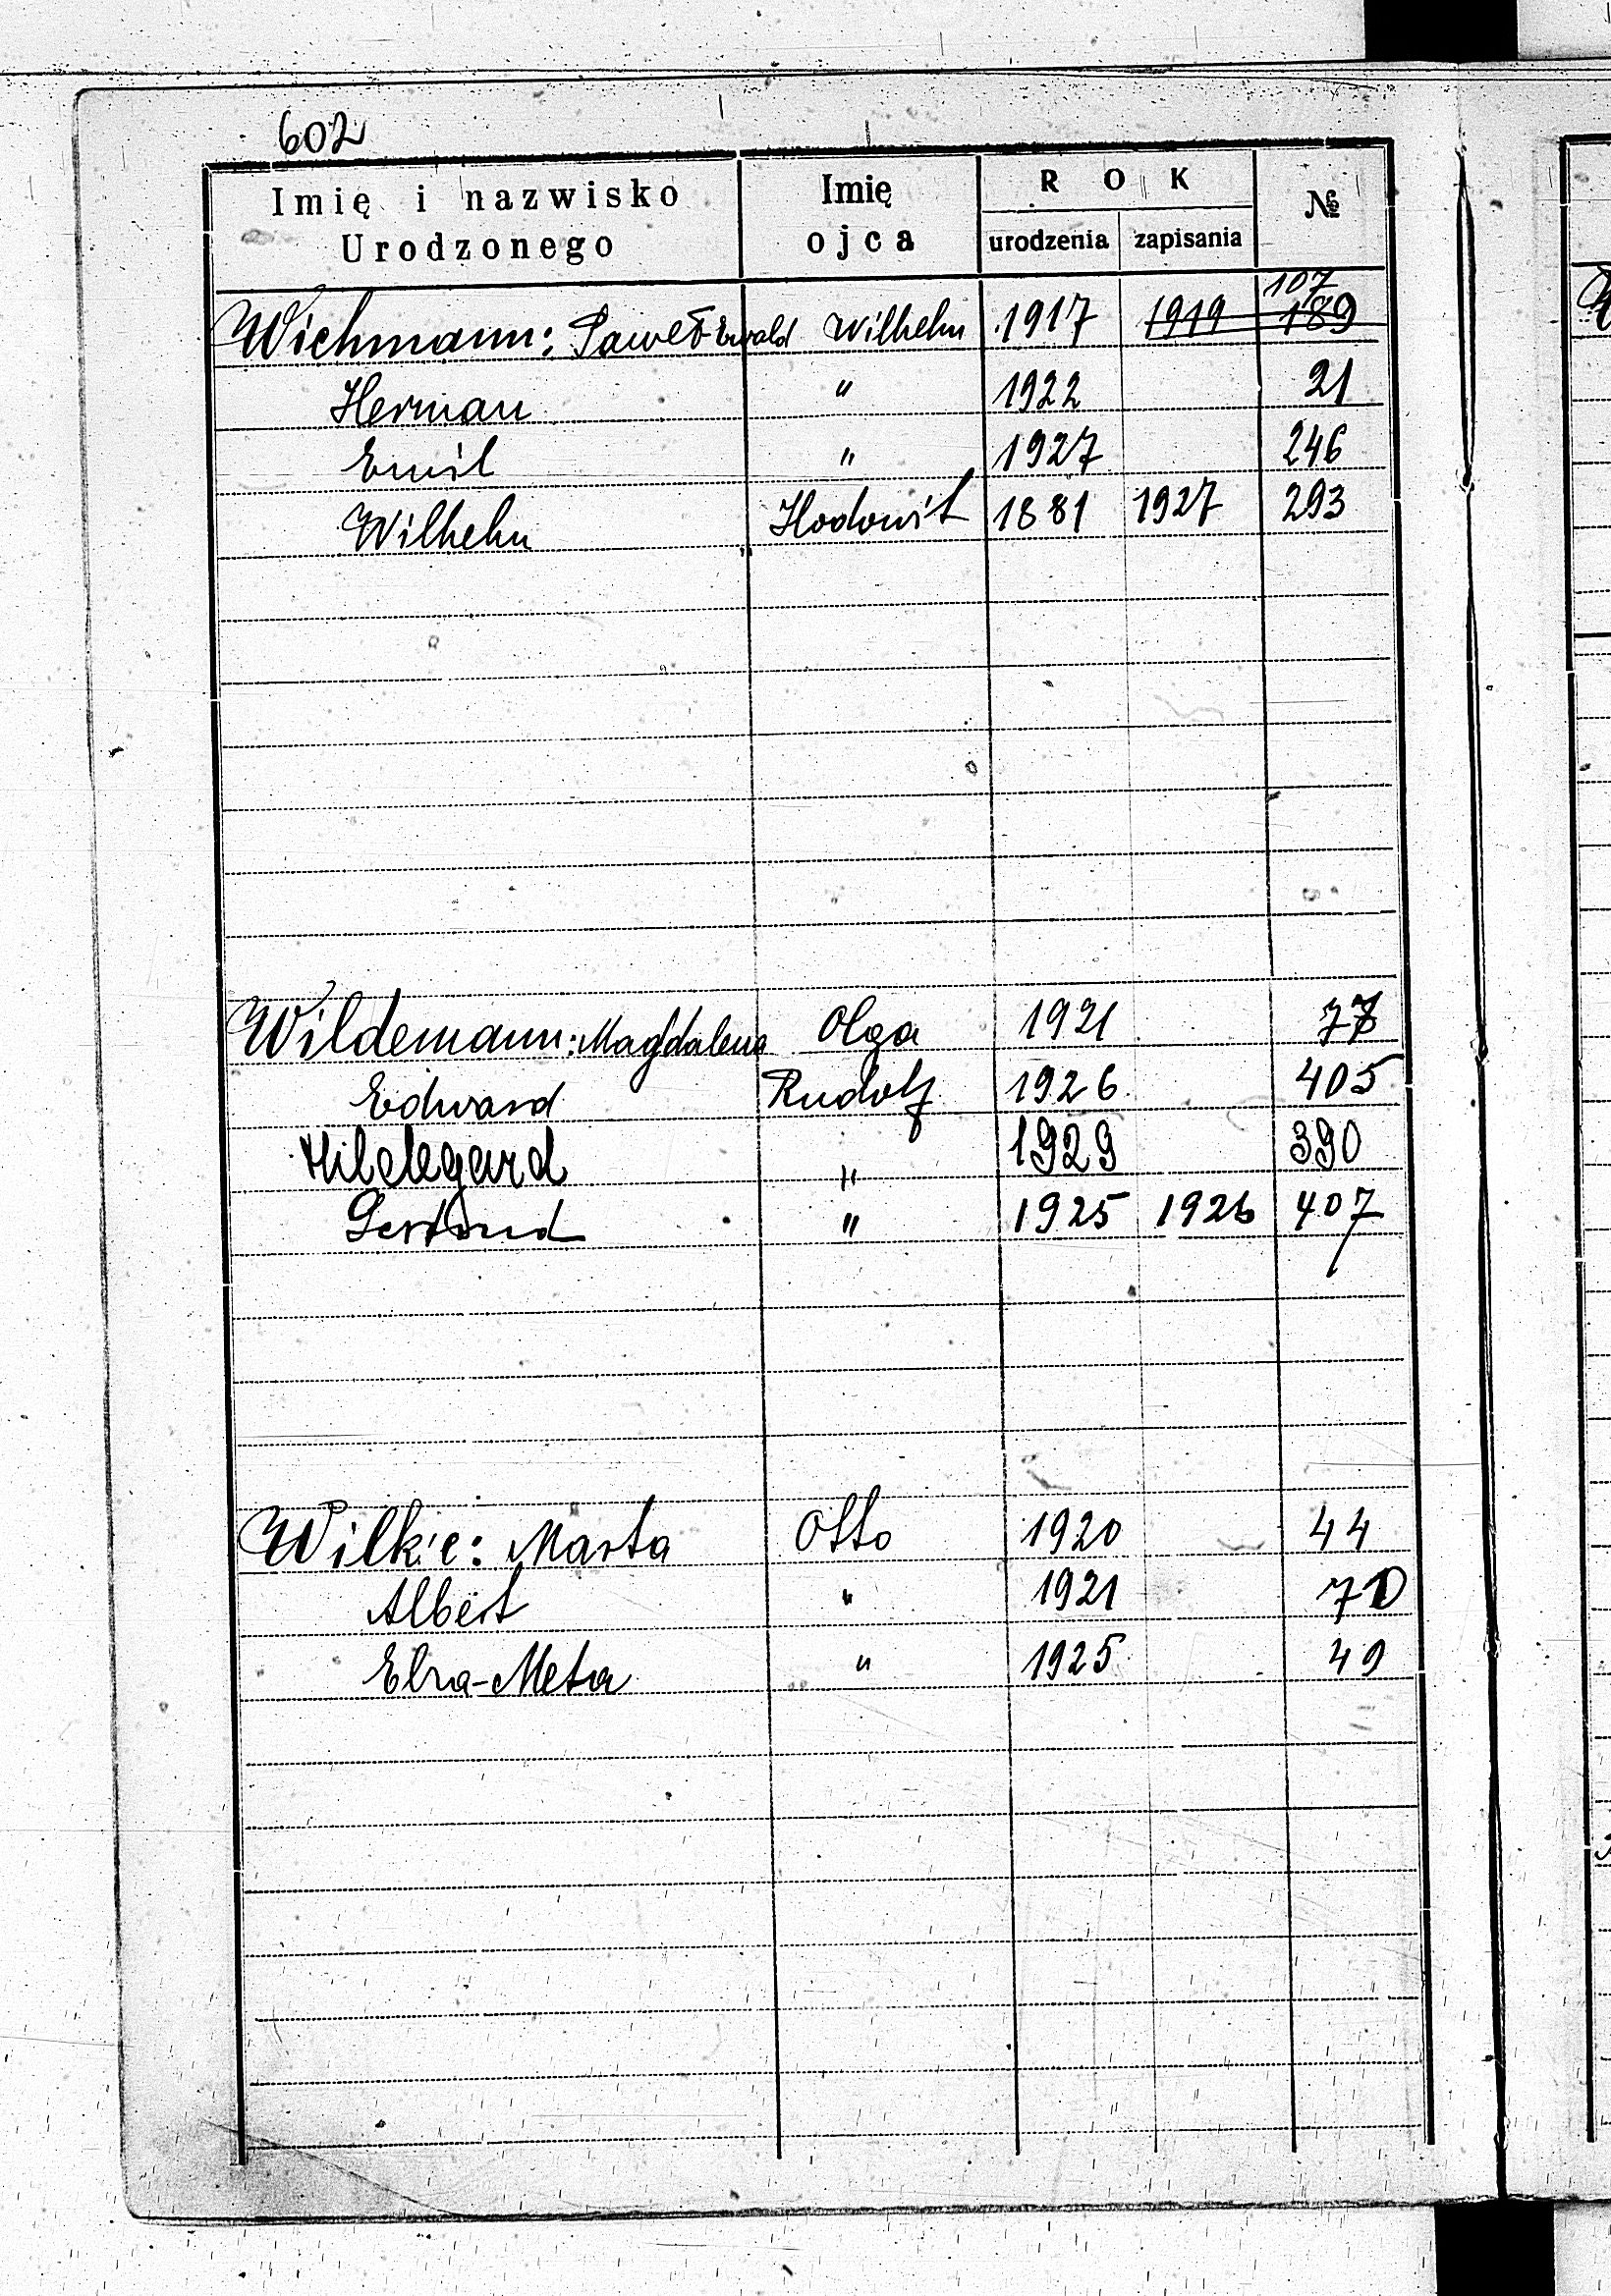 602
Imię i nazwisko Urodzonego Imię ojca ROK urodzenia zapisania №
107
Wichmann: Paweł Ewald Wilhelm 1917 1919 189
Herman " 1922 21
Emil " 1927 246
Wilhelm 1881 1927 293
Wildemann: Magdalena Olga 1921
Edward Rudolf 1926 405
Hildegard " 1929 390
Gertrud " 1925 1926 407
Wilke: Marta Otto 1920 44
Albert " 1921
Elza-Meta " 1925 49